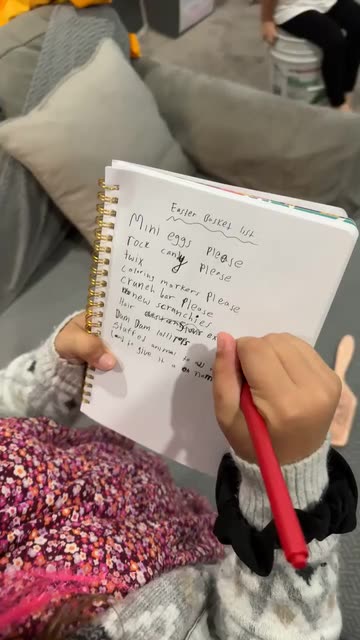 Easter Basket list
Mini eggs Please
rock candy Please
twix
coloring markers Please
crunch bar Please
new scrunchies
Hair
Dum Dum lollipops
Stuffed animal to add
to give it a